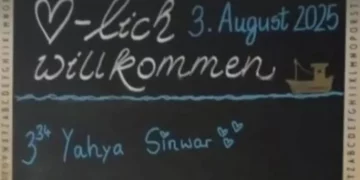 ♡-lich 3. August 2025
willkommen
3³⁴ Yahya Sinwar ♡♡♡